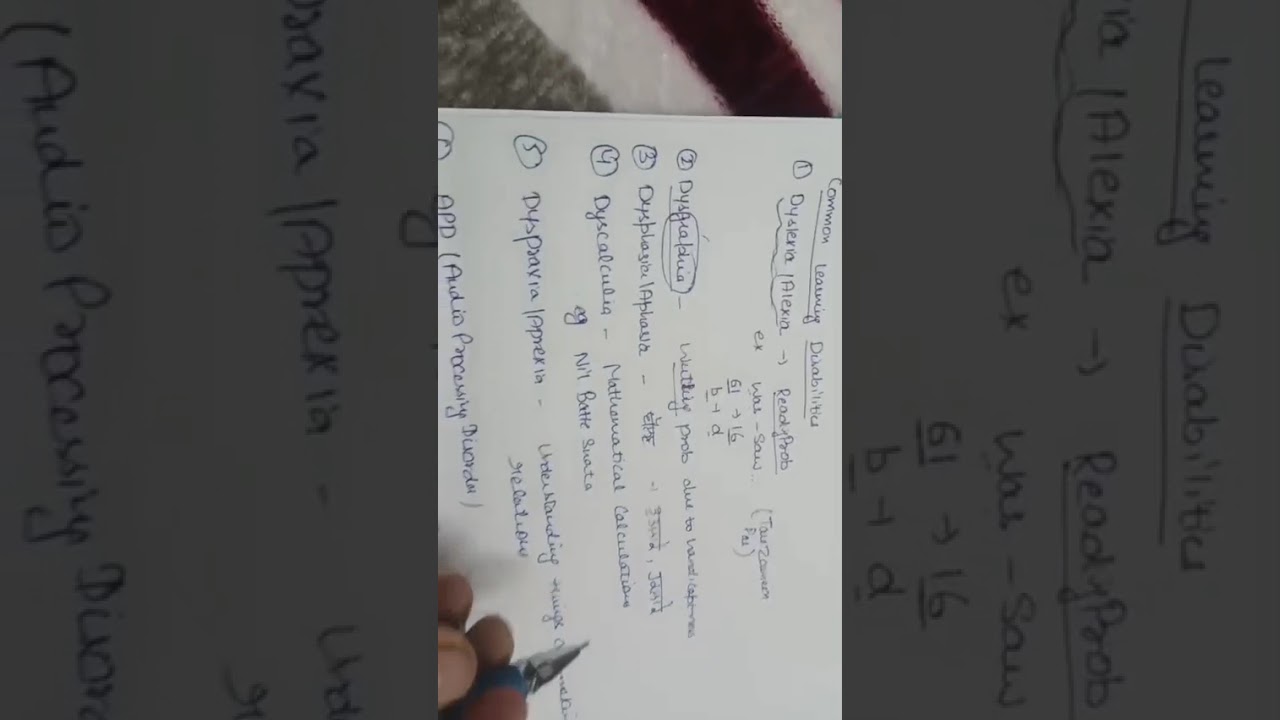 Common Learning Disabilities
① Dyslexia/Alexia → ReadyProb
ex was - saw...
61 → 16
b → d
② Dysgraphia - Writing prob due to handicapness
③ Dysphasia/Aphasia -
④ Dyscalculia - Mathematical Calculations
eg Nil Batte Snata
⑤ Dyspraxia/Aprexia - Understanding things
relations
APD (Audio Processing Disorder)